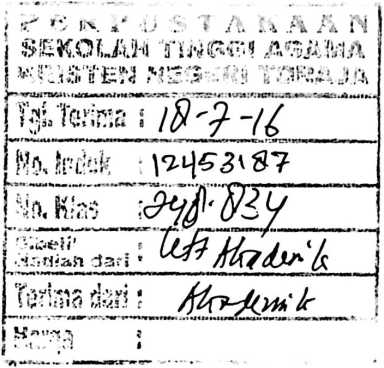 PERPUSTAKAAN
SEKOLAH TINGGI AGAMA
KRISTEN NEGERI TORAJA
Tgl. Terima : 18-7-16
No. Indek : 12453187
No. Klas : 248.834
Dibeli/
Hadiah dari : Akademik
Terima dari : Akademik
Harga :